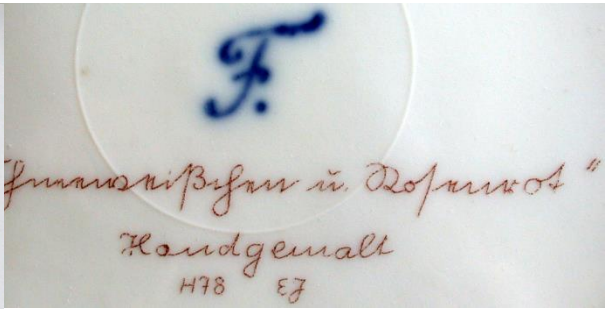 F.
chneeweißchen u. Rosenrot"
Handgemalt
H78 EJ